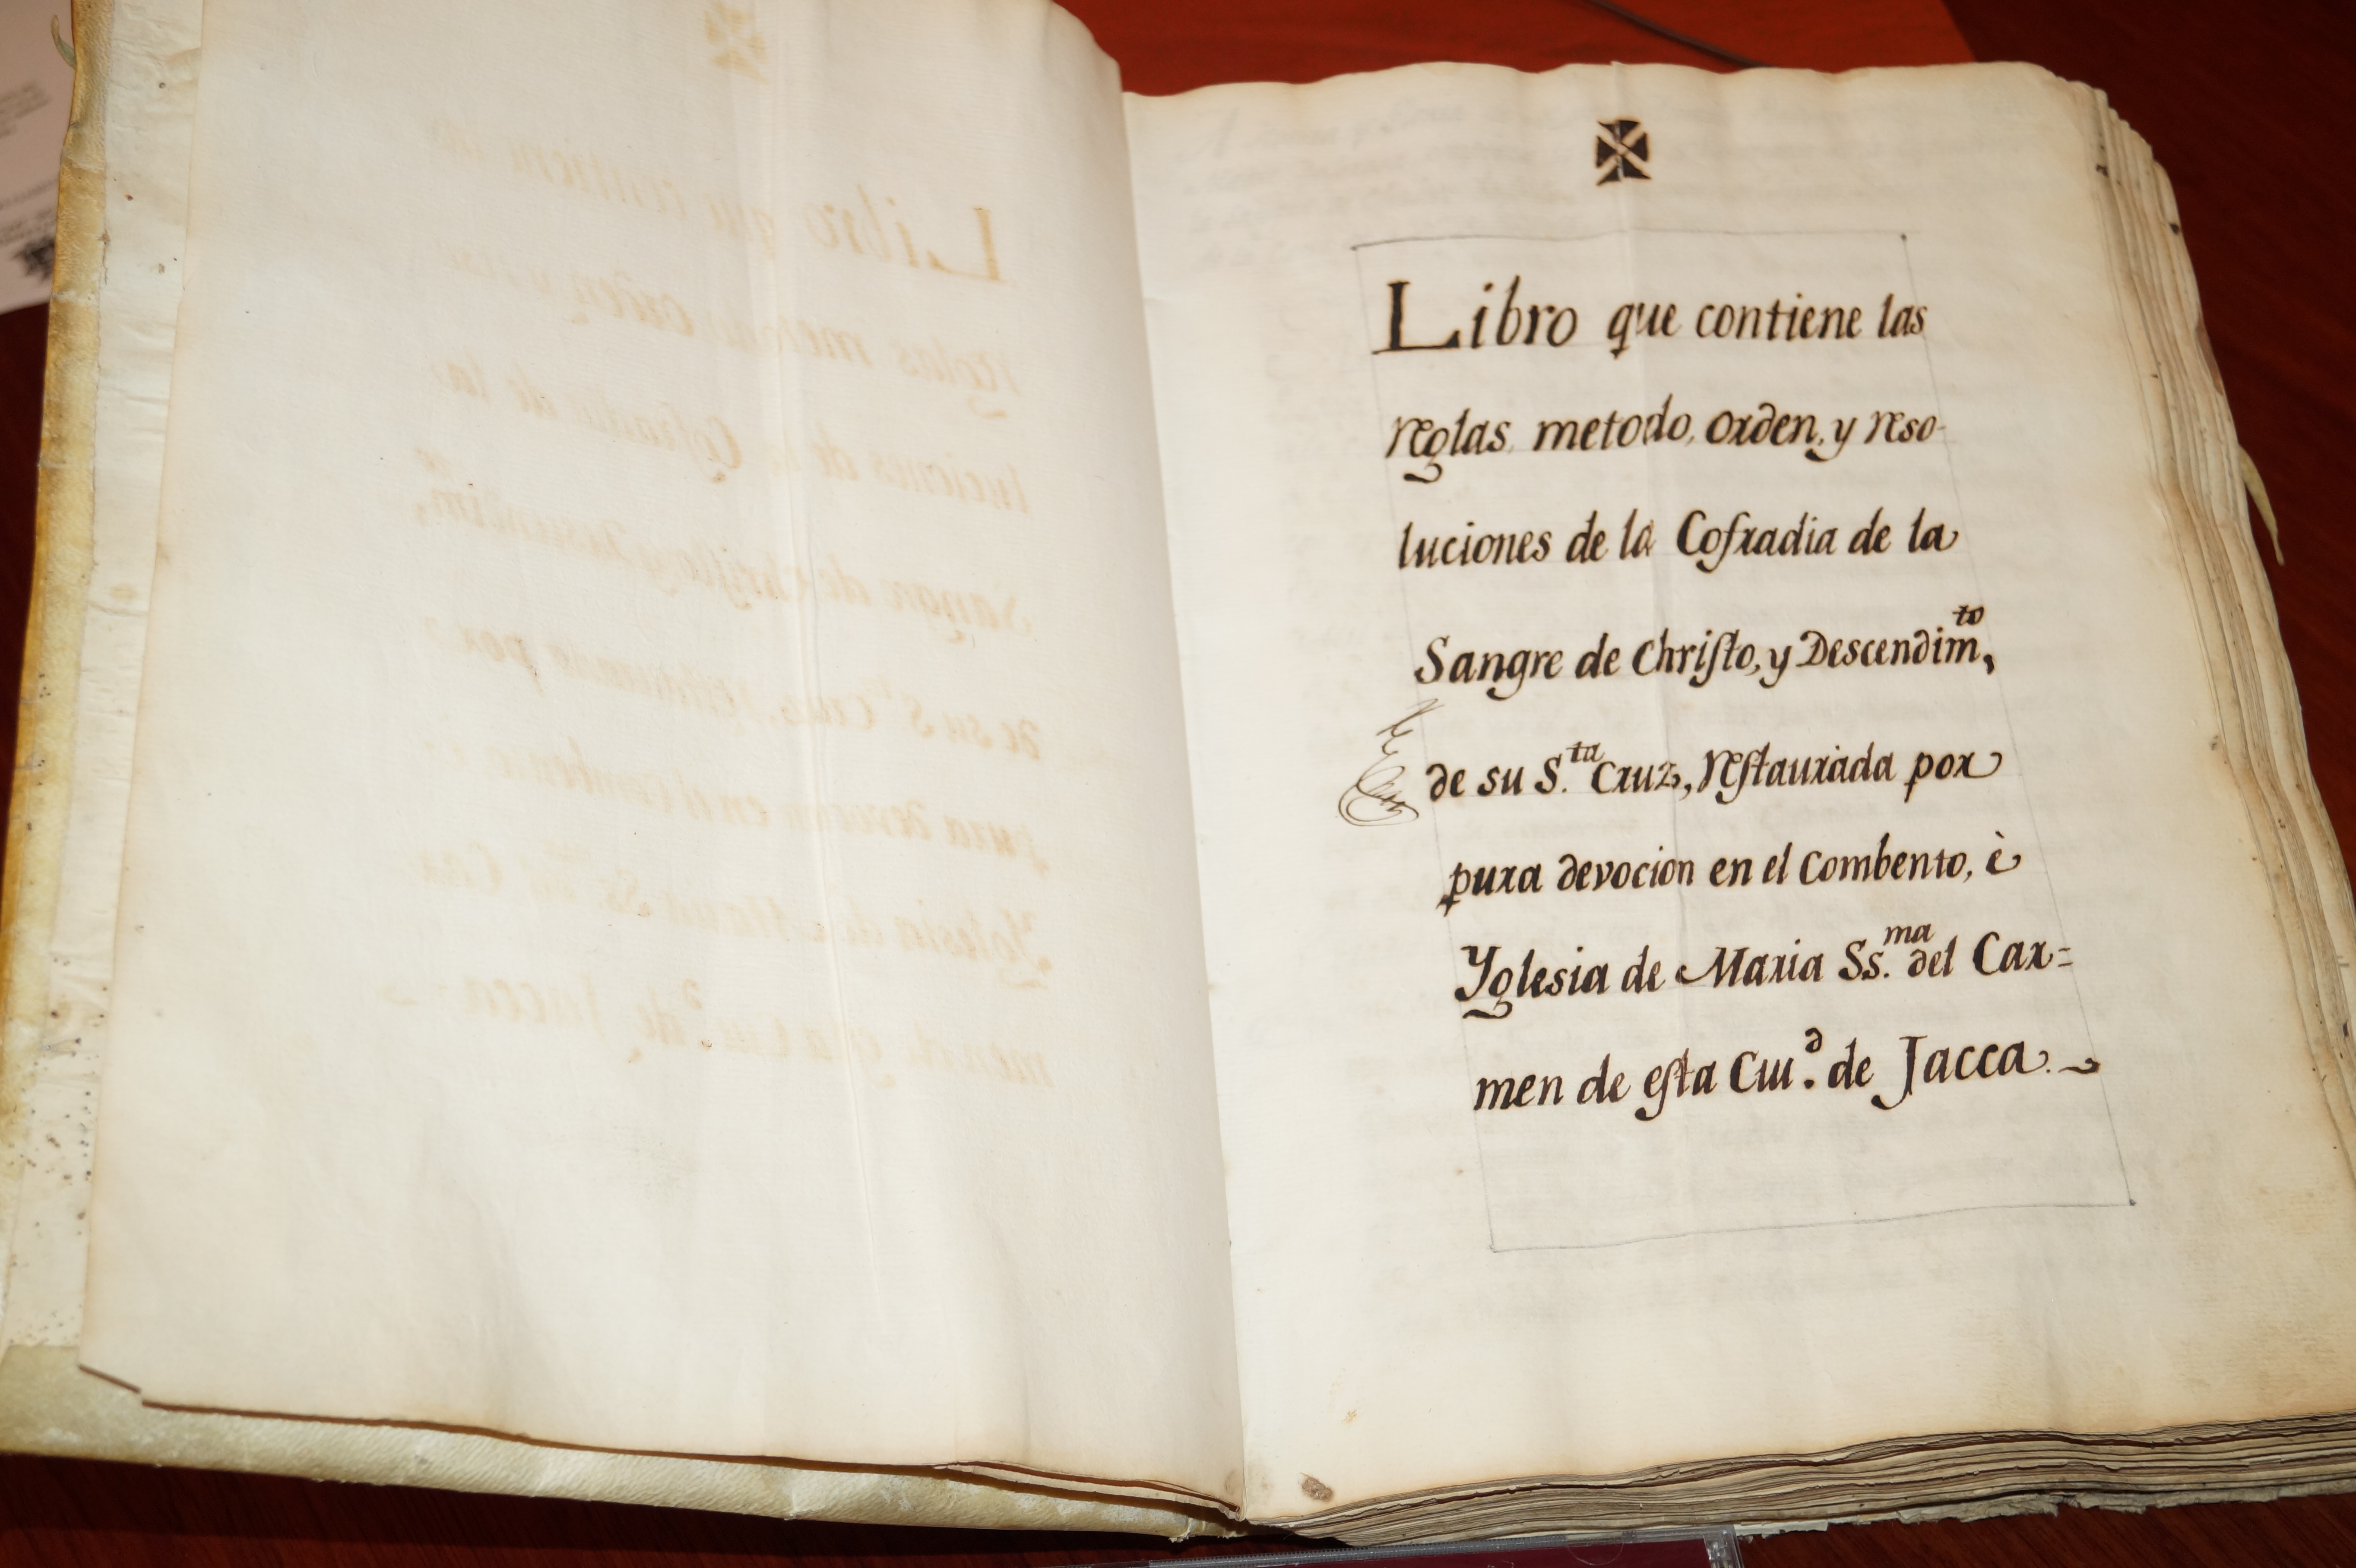 Libro que contiene las
reglas, metodo, orden, y reso-
luciones de la Cofradia de la
Sangre de Chriſto, y Descendim^to,
de su S.^ta Cruz, reſtaurada por
pura devocion en el Combento, è
Yglesia de Maria Ss.^ma del Car=
men de eſta Ciu.^d de Jacca.